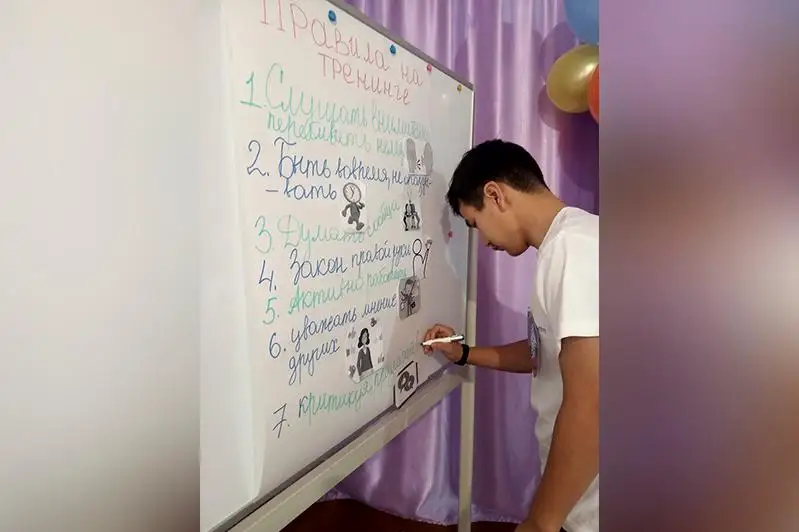 Правила на
тренинге
1. Слушать внимательно
перебивать нельзя
2. Быть вовремя, не опазды-
-вать
3. Думать
4. Закон правой руки
5. Активно работать
6. уважать мнение
других
7. критикуя